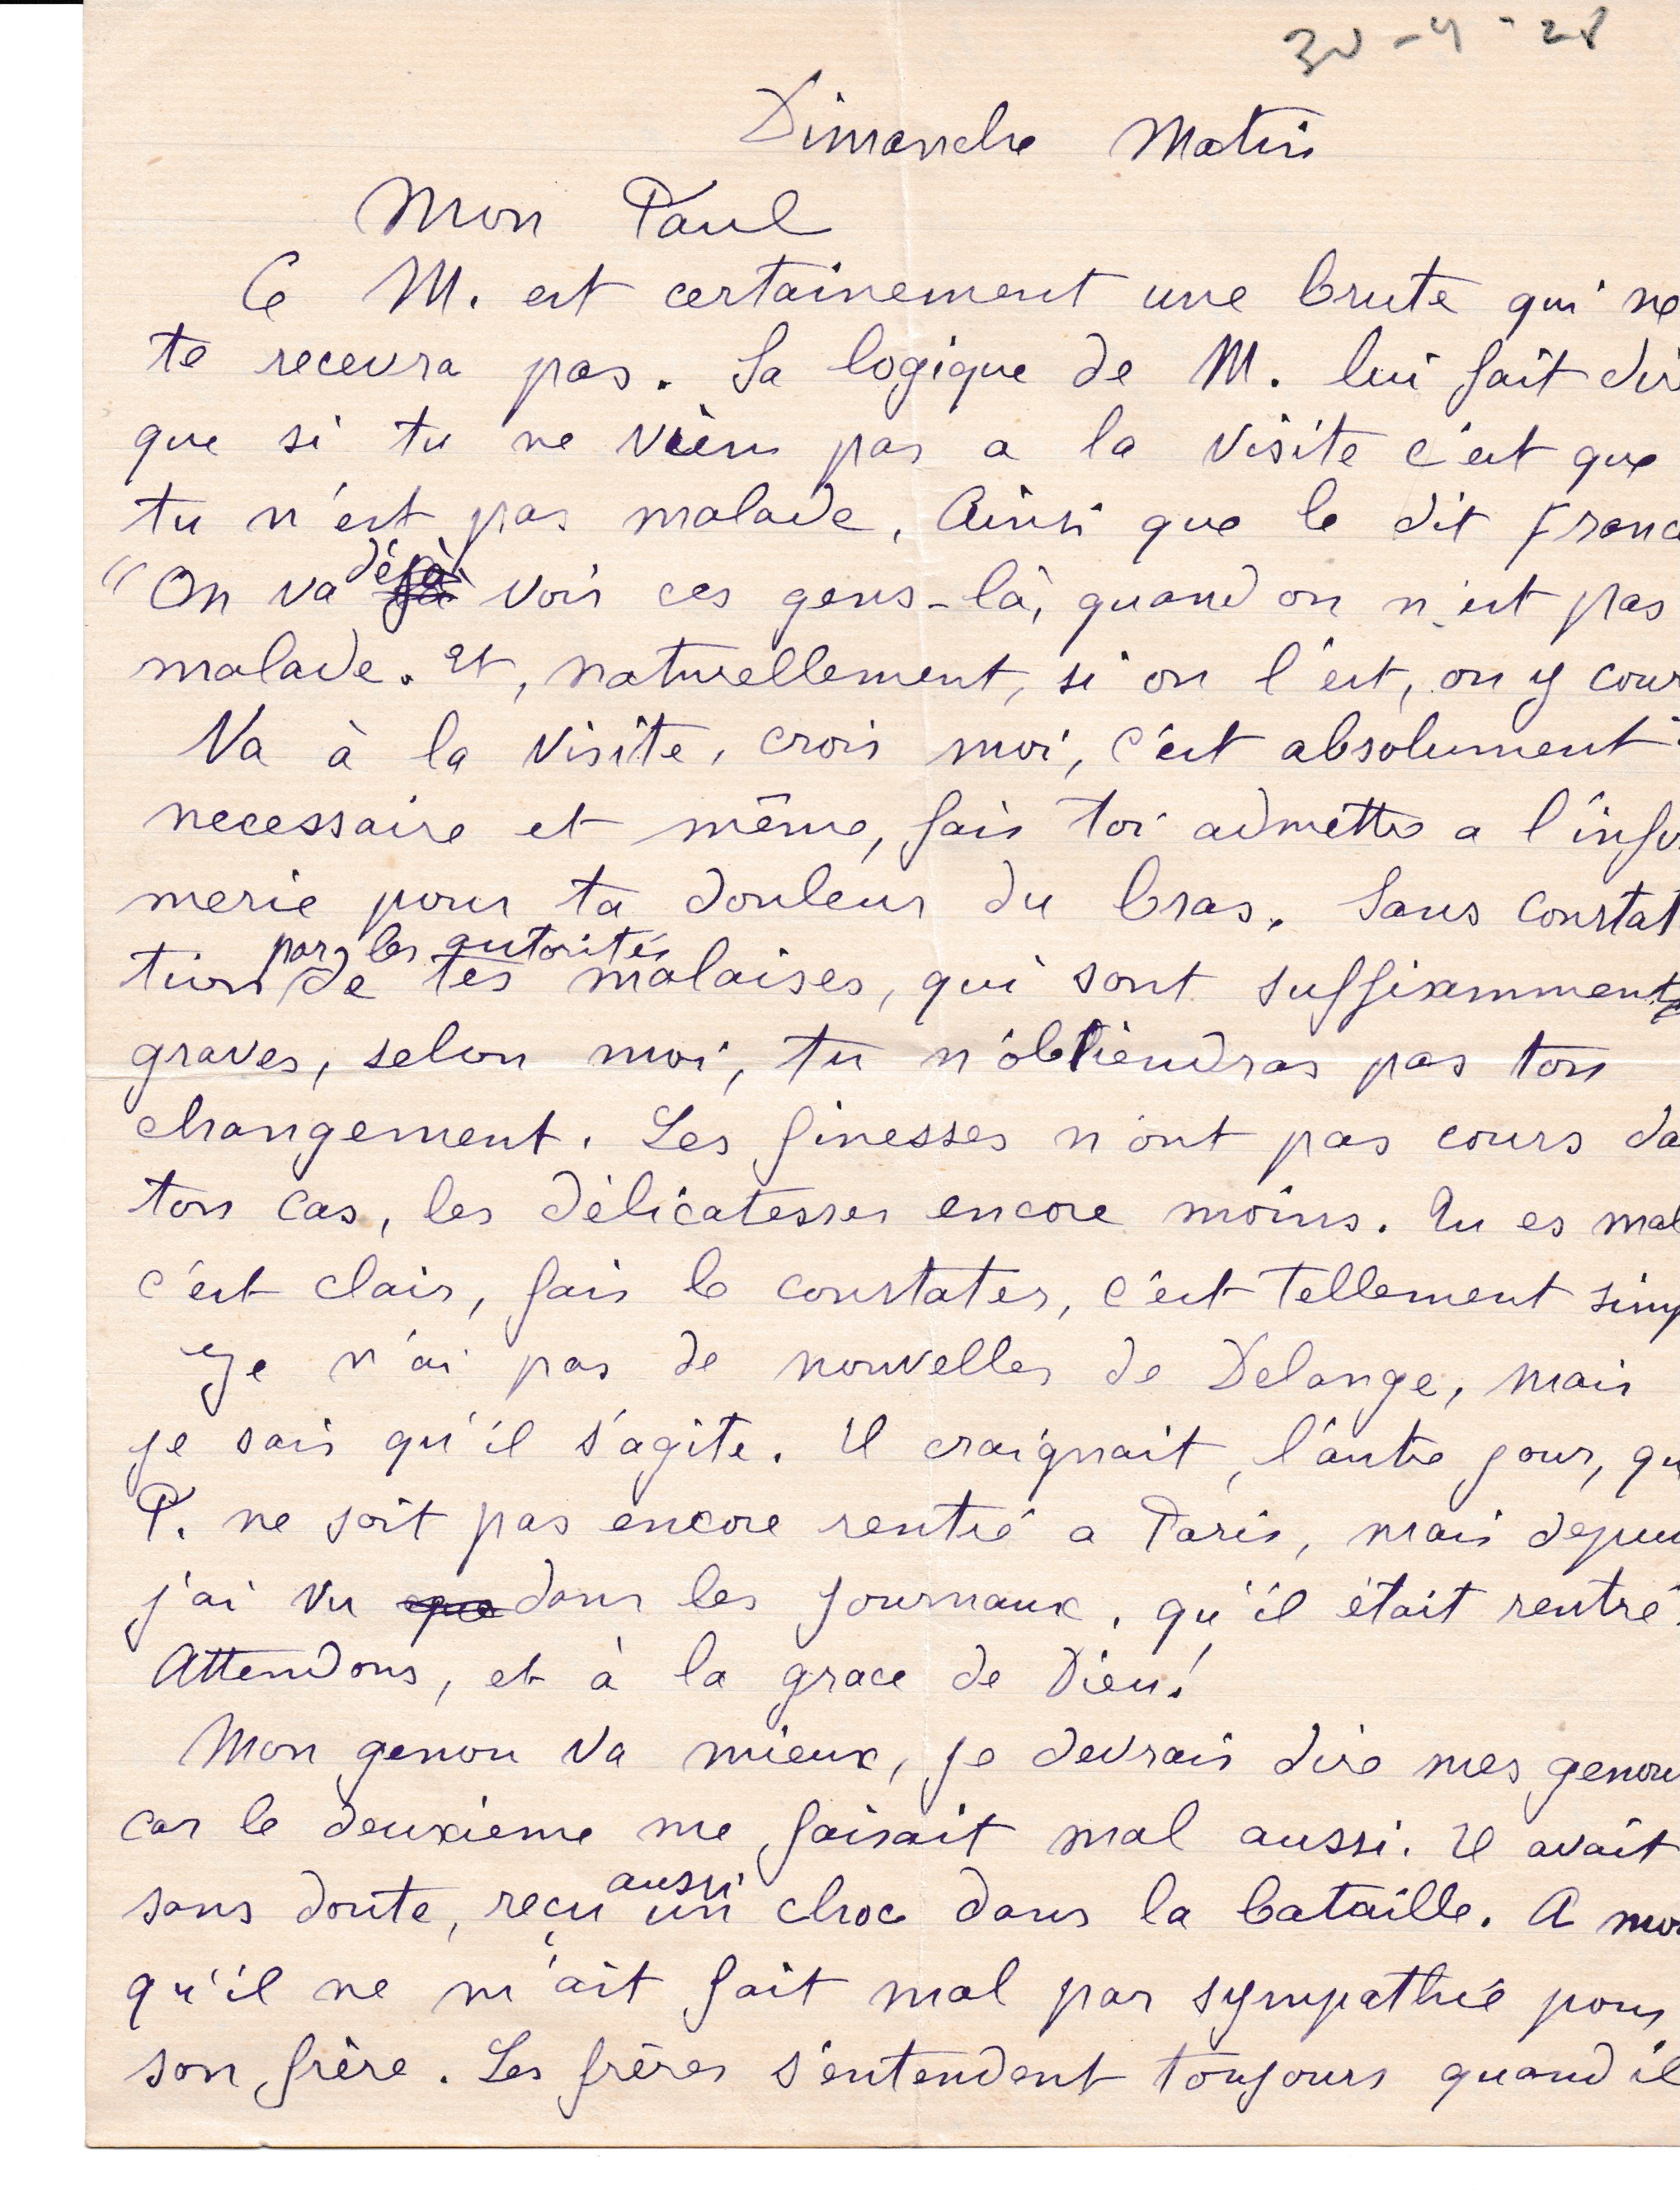 30-4-28
Dimanche Matin
Mon Paul
Ce M. est certainement une brute qui ne
te recevra pas. Sa logique de M. lui fait dir
que si tu ne viens pas a la visite c'est que
tu n'est pas malade. Ainsi que le dit Franc
"On va déjà voir ces gens-là, quand on n'est pas
malade. Et, naturellement, si on l'est, on y cour
Va à la visite, crois moi, c'est absolument
necessaire et même, fais toi admettre a l'infir
merie pour ta douleur du bras. Sans constat
tion par les autorités de tes malaises, qui sont suffisamment
graves, selon moi, tu n'obtiendras pas ton
changement. Les finesses n'ont pas cours da
ton cas, les délicatesses encore moins. Tu es mal
c'est clair, fais le constater, c'est tellement simp
Je n'ai pas de nouvelles de Delange, mais
je sais qu'il s'agite. Il craignait, l'autre jour, qu
P. ne soit pas encore rentré a Paris, mais depui
j'ai vu que dans les journaux, qu'il était rentré.
Attendons, et à la grace de Dieu!
Mon genou va mieux, je devrais dire mes genou
car le deuxième me faisait mal aussi. Il avait
sans doute, reçu aussi un choc dans la bataille. A moi
qu'il ne m'ait fait mal par sympathie pour
son frère. Les frères s'entendent toujours quand il